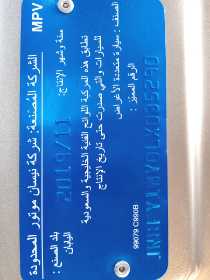 الشركة المصنعة: شركة نيسان موتور المحدودة
بلد الصنع: اليابان
سنة وشهر الإنتاج: 2019/11
تطابق هذه المركبة اللوائح الفنية الخليجية والسعودية
للسيارات والتي صدرت حتى تاريخ الإنتاج
الصنف: سيارة متعددة الأغراض
MPV
الرقم المميز:
99079 C990B